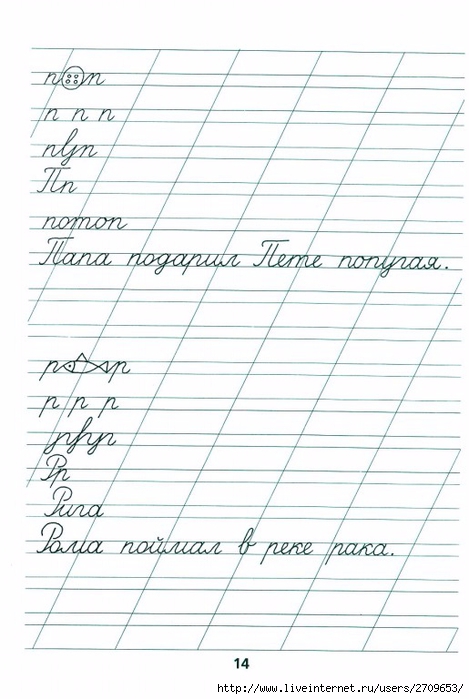 п п
п п п
Пп
потоп
Папа подарил Пете попугая.
р р
р р р
Рр
Рига
Рома поймал в реке рака.
14
http://www.liveinternet.ru/users/2709653/